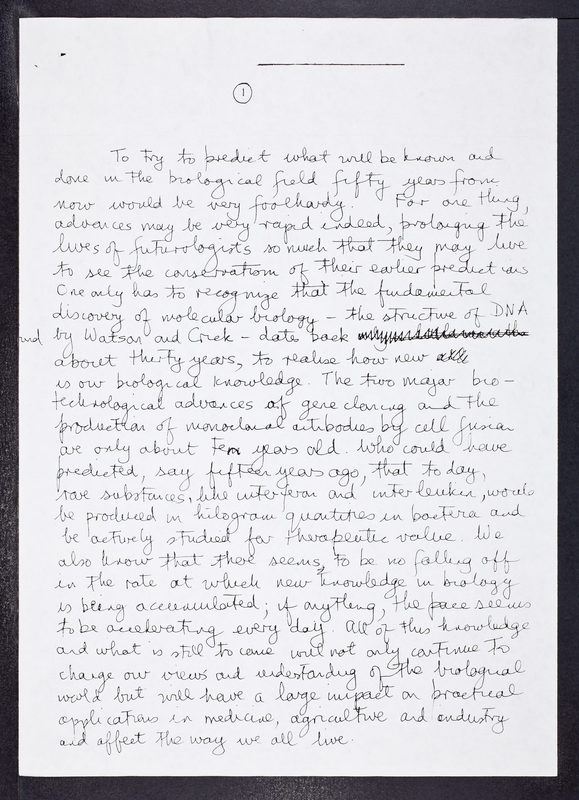 1
To try to predict what will be known and
done in the biological field fifty years from
now would be very foolhardy. For one thing,
advances may be very rapid indeed, prolonging the
lives of futurologists so much that they may live
to see the conservatism of their earlier predictions
One only has to recognize that the fundamental
discovery of molecular biology – the structure of DNA
by Watson and Crick – dates back
about thirty years, to realise how new
is our biological knowledge. The two major bio-
technological advances of gene cloning and the
production of monoclonal antibodies by cell fusion
are only about Ten years old. Who could have
predicted, say fifteen years ago, that today,
rare substances, like interferon and interleukin, would
be produced in kilogram quantities in bacteria and
be actively studied for therapeutic value. We
also know that there seems to be no falling off
in the rate at which new knowledge in biology
is being accumulated; if anything, the pace seems
to be accelerating every day. All of this knowledge
and what is still to come will not only continue to
change our views and understanding of the biological
world but will have a large impact on practical
applications in medicine, agriculture and industry
and affect the way we all live.